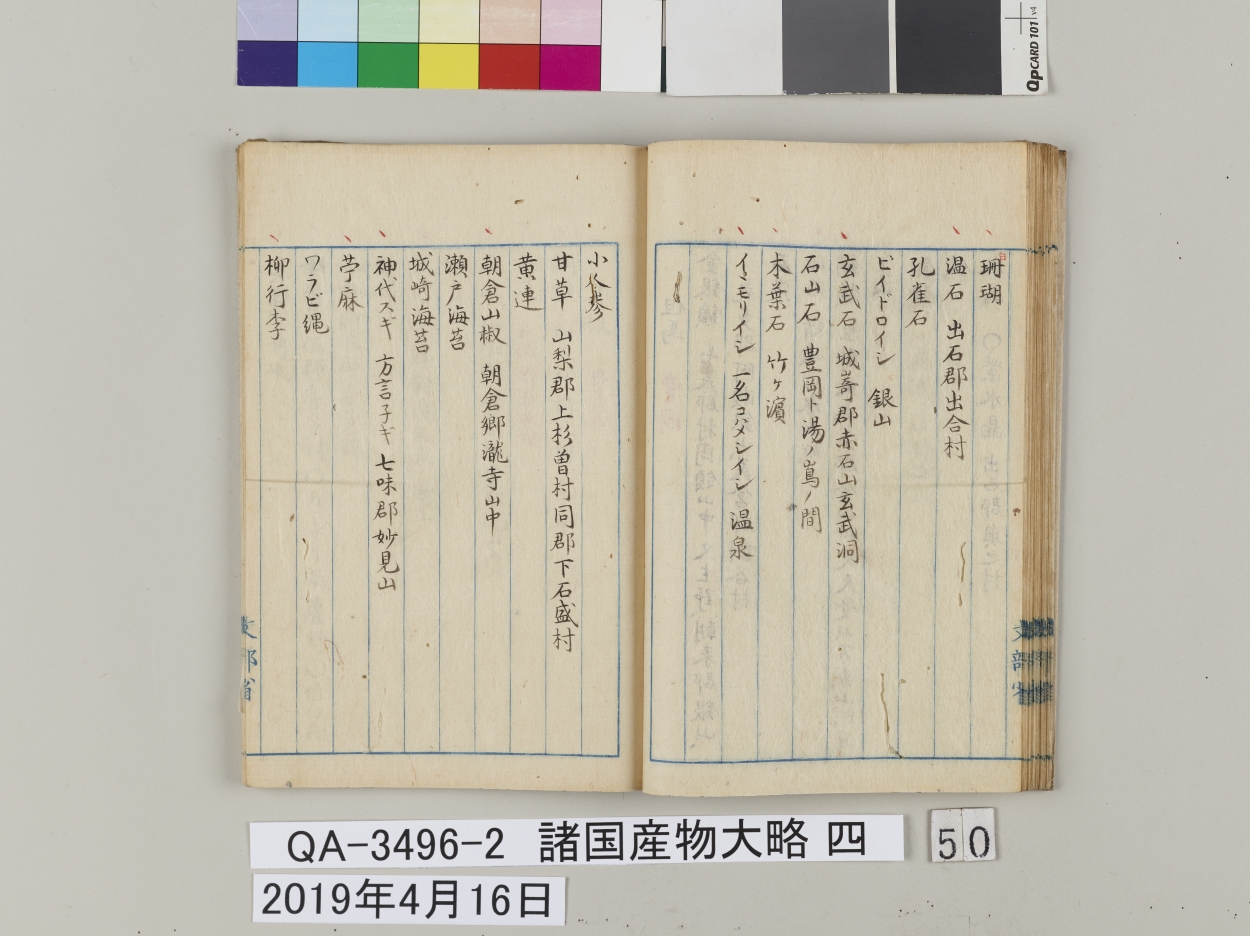 OpCARD 101 v4
珊瑚
温石　出石郡出合村
孔雀石
ビイドロイシ　銀山
玄武石　城嵜郡赤石山玄武洞
石山石　豊岡ト湯ノ嶌ノ間
木葉石　竹ケ濱
イミモリイシ　一名コハメシイシ　温泉
小人参
甘草　山梨郡上杉曽村同郡下石盛村
黄連
朝倉山椒　朝倉郷瀧寺山中
瀬戸海苔
城崎海苔
神代スギ　方言子ギ　七味郡妙見山
苧麻
ワラビ縄
柳行李
文部省
文部省
QA-3496-2　諸国産物大略 四
50
2019年4月16日